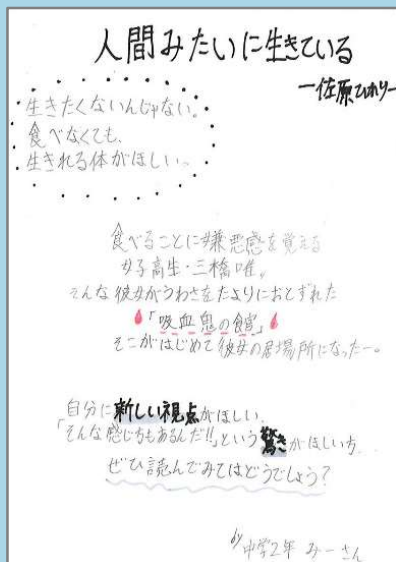 人間みたいに生きている
ー佐原ひかりー
生きたくないんじゃない。
食べなくても、
生きれる体がほしい。
食べることに嫌悪感を覚える
女子高生・三橋唯。
そんな彼女がうわさをたよりにおとずれた
「吸血鬼の館」
そこがはじめて彼女の居場所になったー。
自分に新しい視点がほしい、
「そんな感じ方もあるんだ!!」という驚きがほしい方、
ぜひ読んでみてはどうでしょう?
by 中学2年 みーさん